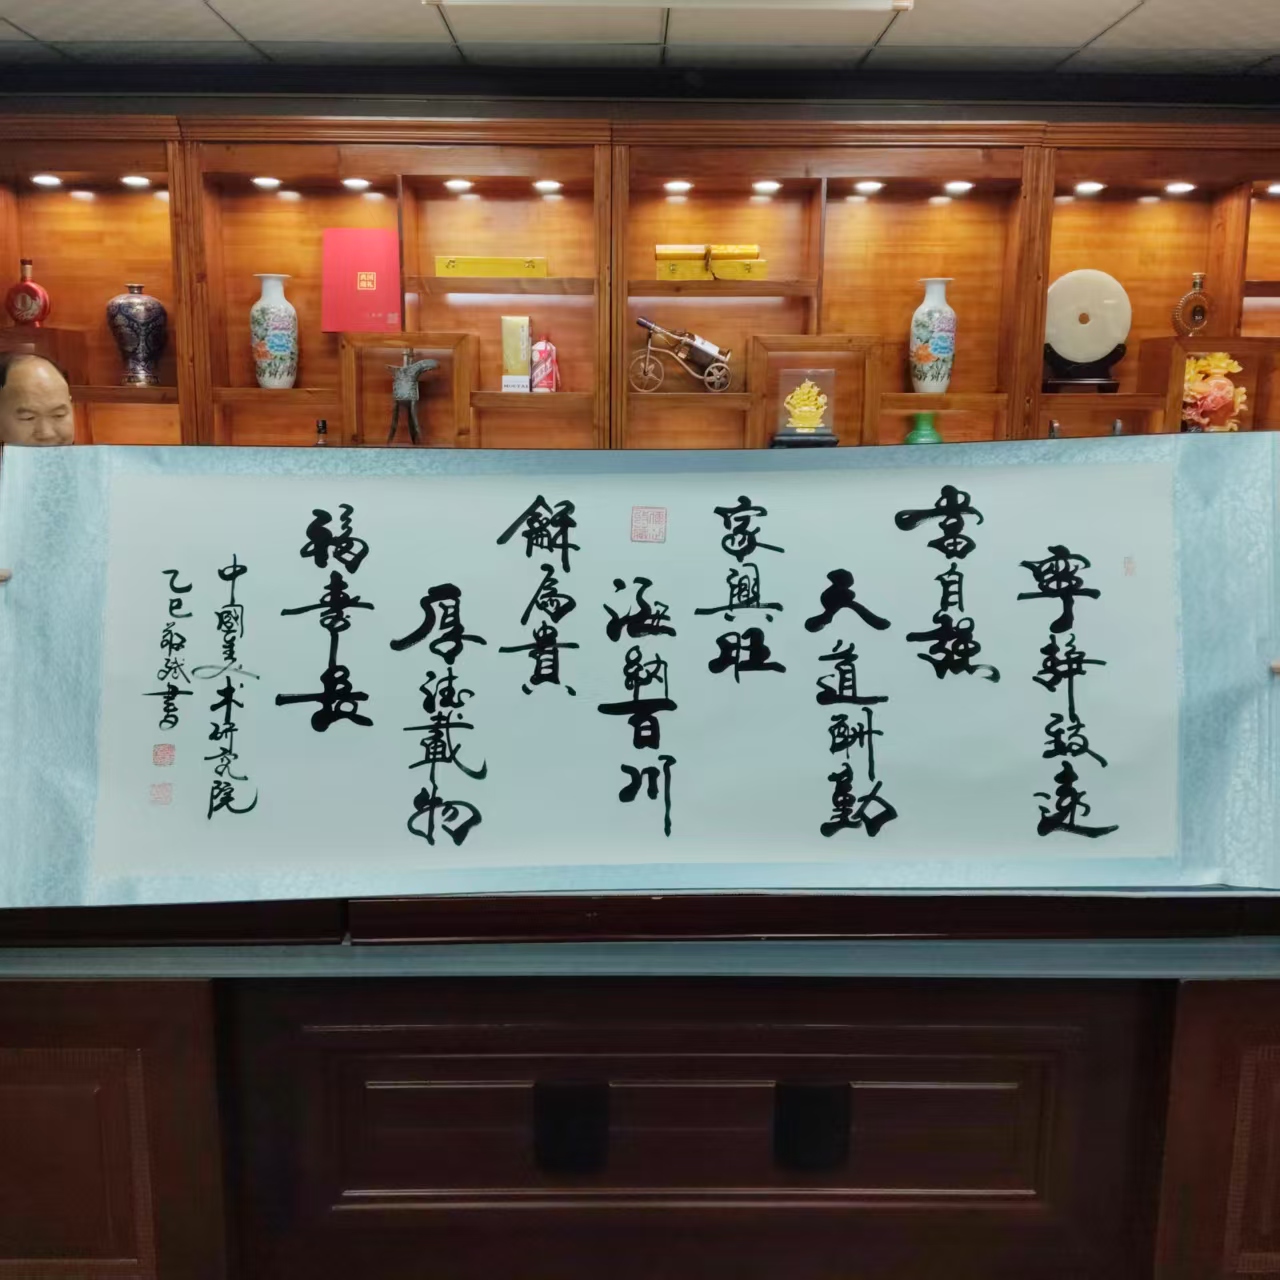 寧靜致遠
當自強
天道酬勤
家興旺
海納百川
龢為貴
厚德載物
福壽長
中國美术研究院
乙巳敬斌書